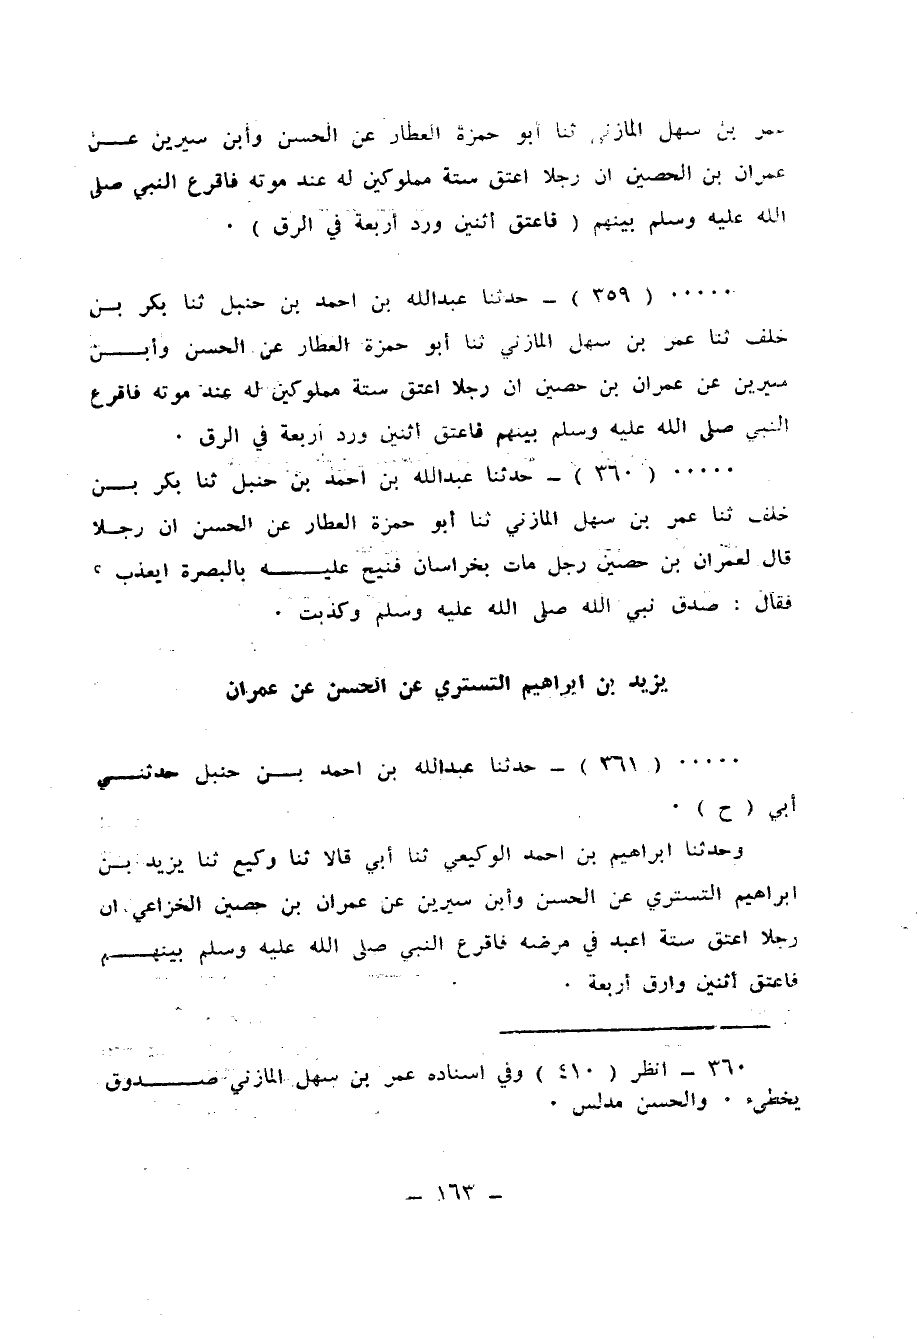 عمر بن سهل المازني ثنا أبو حمزة العطار عن الحسن وأبن سيرين عـــن
عمران بن الحصين ان رجلا اعتق ستة مملوكين له عند موته فاقرع النبي صلى
الله عليه وسلم بينهم ( فاعتق أثنين ورد أربعة في الرق ) ٠
٠٠٠٠٠ ( ٣٥٩ ) ـ حدثنا عبدالله بن احمد بن حنبل ثنا بكر بـــن
خلف ثنا عمر بن سهل المازني ثنا أبو حمزة العطار عن الحسن وأبـــن
سيرين عن عمران بن حصين ان رجلا اعتق ستة مملوكين له عند موته فاقرع
النبي صلى الله عليه وسلم بينهم فاعتق أثنين ورد أربعة في الرق ٠
٠٠٠٠٠ ( ٣٦٠ ) ـ حدثنا عبدالله بن احمد بن حنبل ثنا بكر بـــن
خلف ثنا عمر بن سهل المازني ثنا أبو حمزة العطار عن الحسن ان رجـلا
قال لعمران بن حصين رجل مات بخراسان فنيح عليـــــه بالبصرة ايعذب ؟
فقال : صدق نبي الله صلى الله عليه وسلم وكذبت ٠
يزيد بن ابراهيم التستري عن الحسن عن عمران
٠٠٠٠٠ ( ٣٦١ ) ـ حدثنا عبدالله بن احمد بـــن حنبل حدثنـــي
أبي ( ح ) ٠
وحدثنا ابراهيم بن احمد الوكيعي ثنا أبي قالا ثنا وكيع ثنا يزيد بـن
ابراهيم التستري عن الحسن وأبن سيرين عن عمران بن حصين الخزاعي ان
رجلا اعتق ستة اعبد في مرضه فاقرع النبي صلى الله عليه وسلم بينهـــم
فاعتق أثنين وارق أربعة ٠
٣٦٠ ـ انظر ( ٤١٠ ) وفي اسناده عمر بن سهل المازني صـــــدوق
يخطىء ٠ والحسن مدلس ٠
ـ ١٦٣ ـ